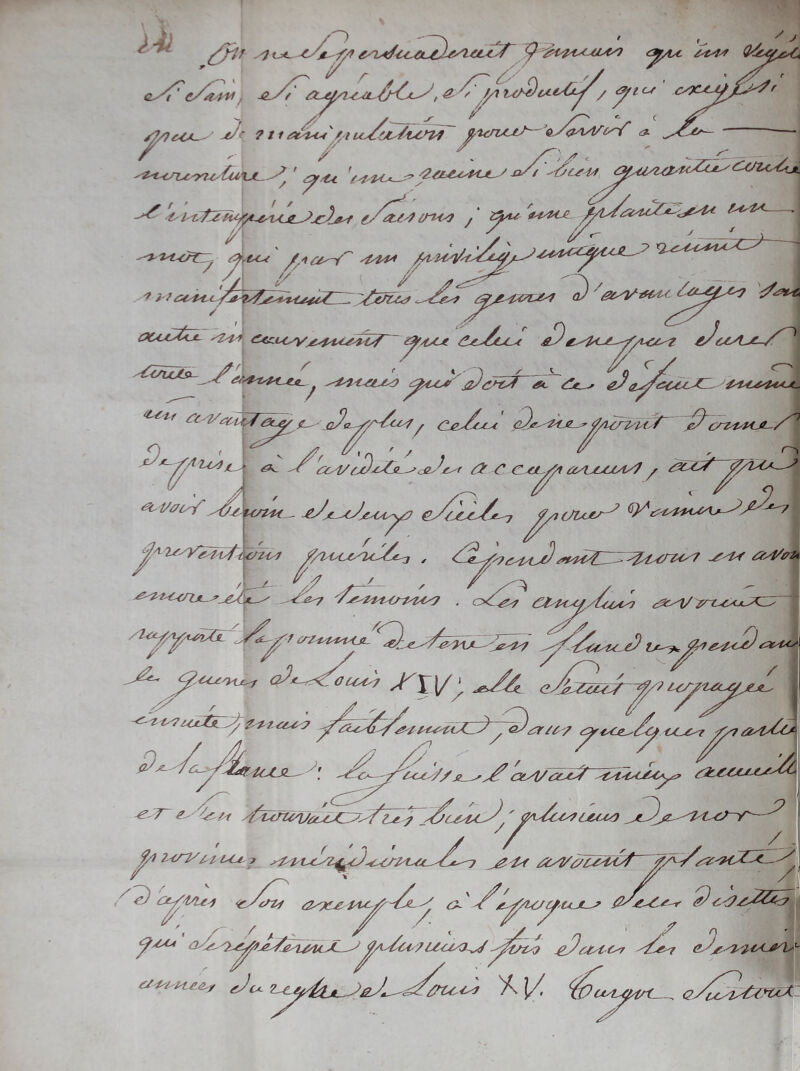 On ne se persuaderait Jamais qu'un végét
si sain, si agréable, si productif, qui exige si
peu de manipulation pour servir à la —
nourriture; qu'une racine si bien garantie contre
l'intempérie des saisons; qu'une plante en un
mot, qui par un privilège unique réunit
manifestement tous les genres d'avantages san
autre inconvenient que celui de ne pas durer
toute l'année, mais qui doit à ce défaut même
un avantage de plus, celui de ne point donner
de prise à l'avidité des accapareurs, ait pu
avoir besoin de deux siècles pour vaincre des
preventions puériles. Cépendant nous en avon
encore été les témoins. Les anglais avoient
rapporté la pomme de terre en flandre pendan
les guerres de Louis XIV; elle s'etait propagée
ensuite, mais faiblement, dans quelques partie
de la france: la suisse l'avait mieux accueill
et s'en trouvait très bien; plusieurs de nos
provinces méridionales en avoient planté,
d'après son exemple, à l'époque de ces disettes
qui se répétèrent plusieurs fois dans les dernier
années du regne de Louis XV. Turgot surtout